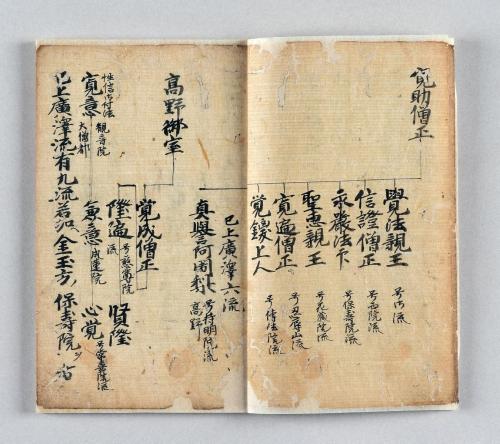 寛助僧正
覺法親王 号御流
信證僧正 号西院流
永嚴法印 号保壽院流
聖恵親王 号花蔵院流
寛遍僧正 号忍辱山流
覚鑁上人 号傳法院流
已上廣澤六流
真譽阿闍梨 号持明院流 高野
高野御室
覚成僧正
隆遍 号慈尊院流
賢隆
性信御付法
寛意 観音院 大僧都
兼意 成蓮院
心覚 号常喜院流
已上廣澤流有九流若加金玉方,保壽院